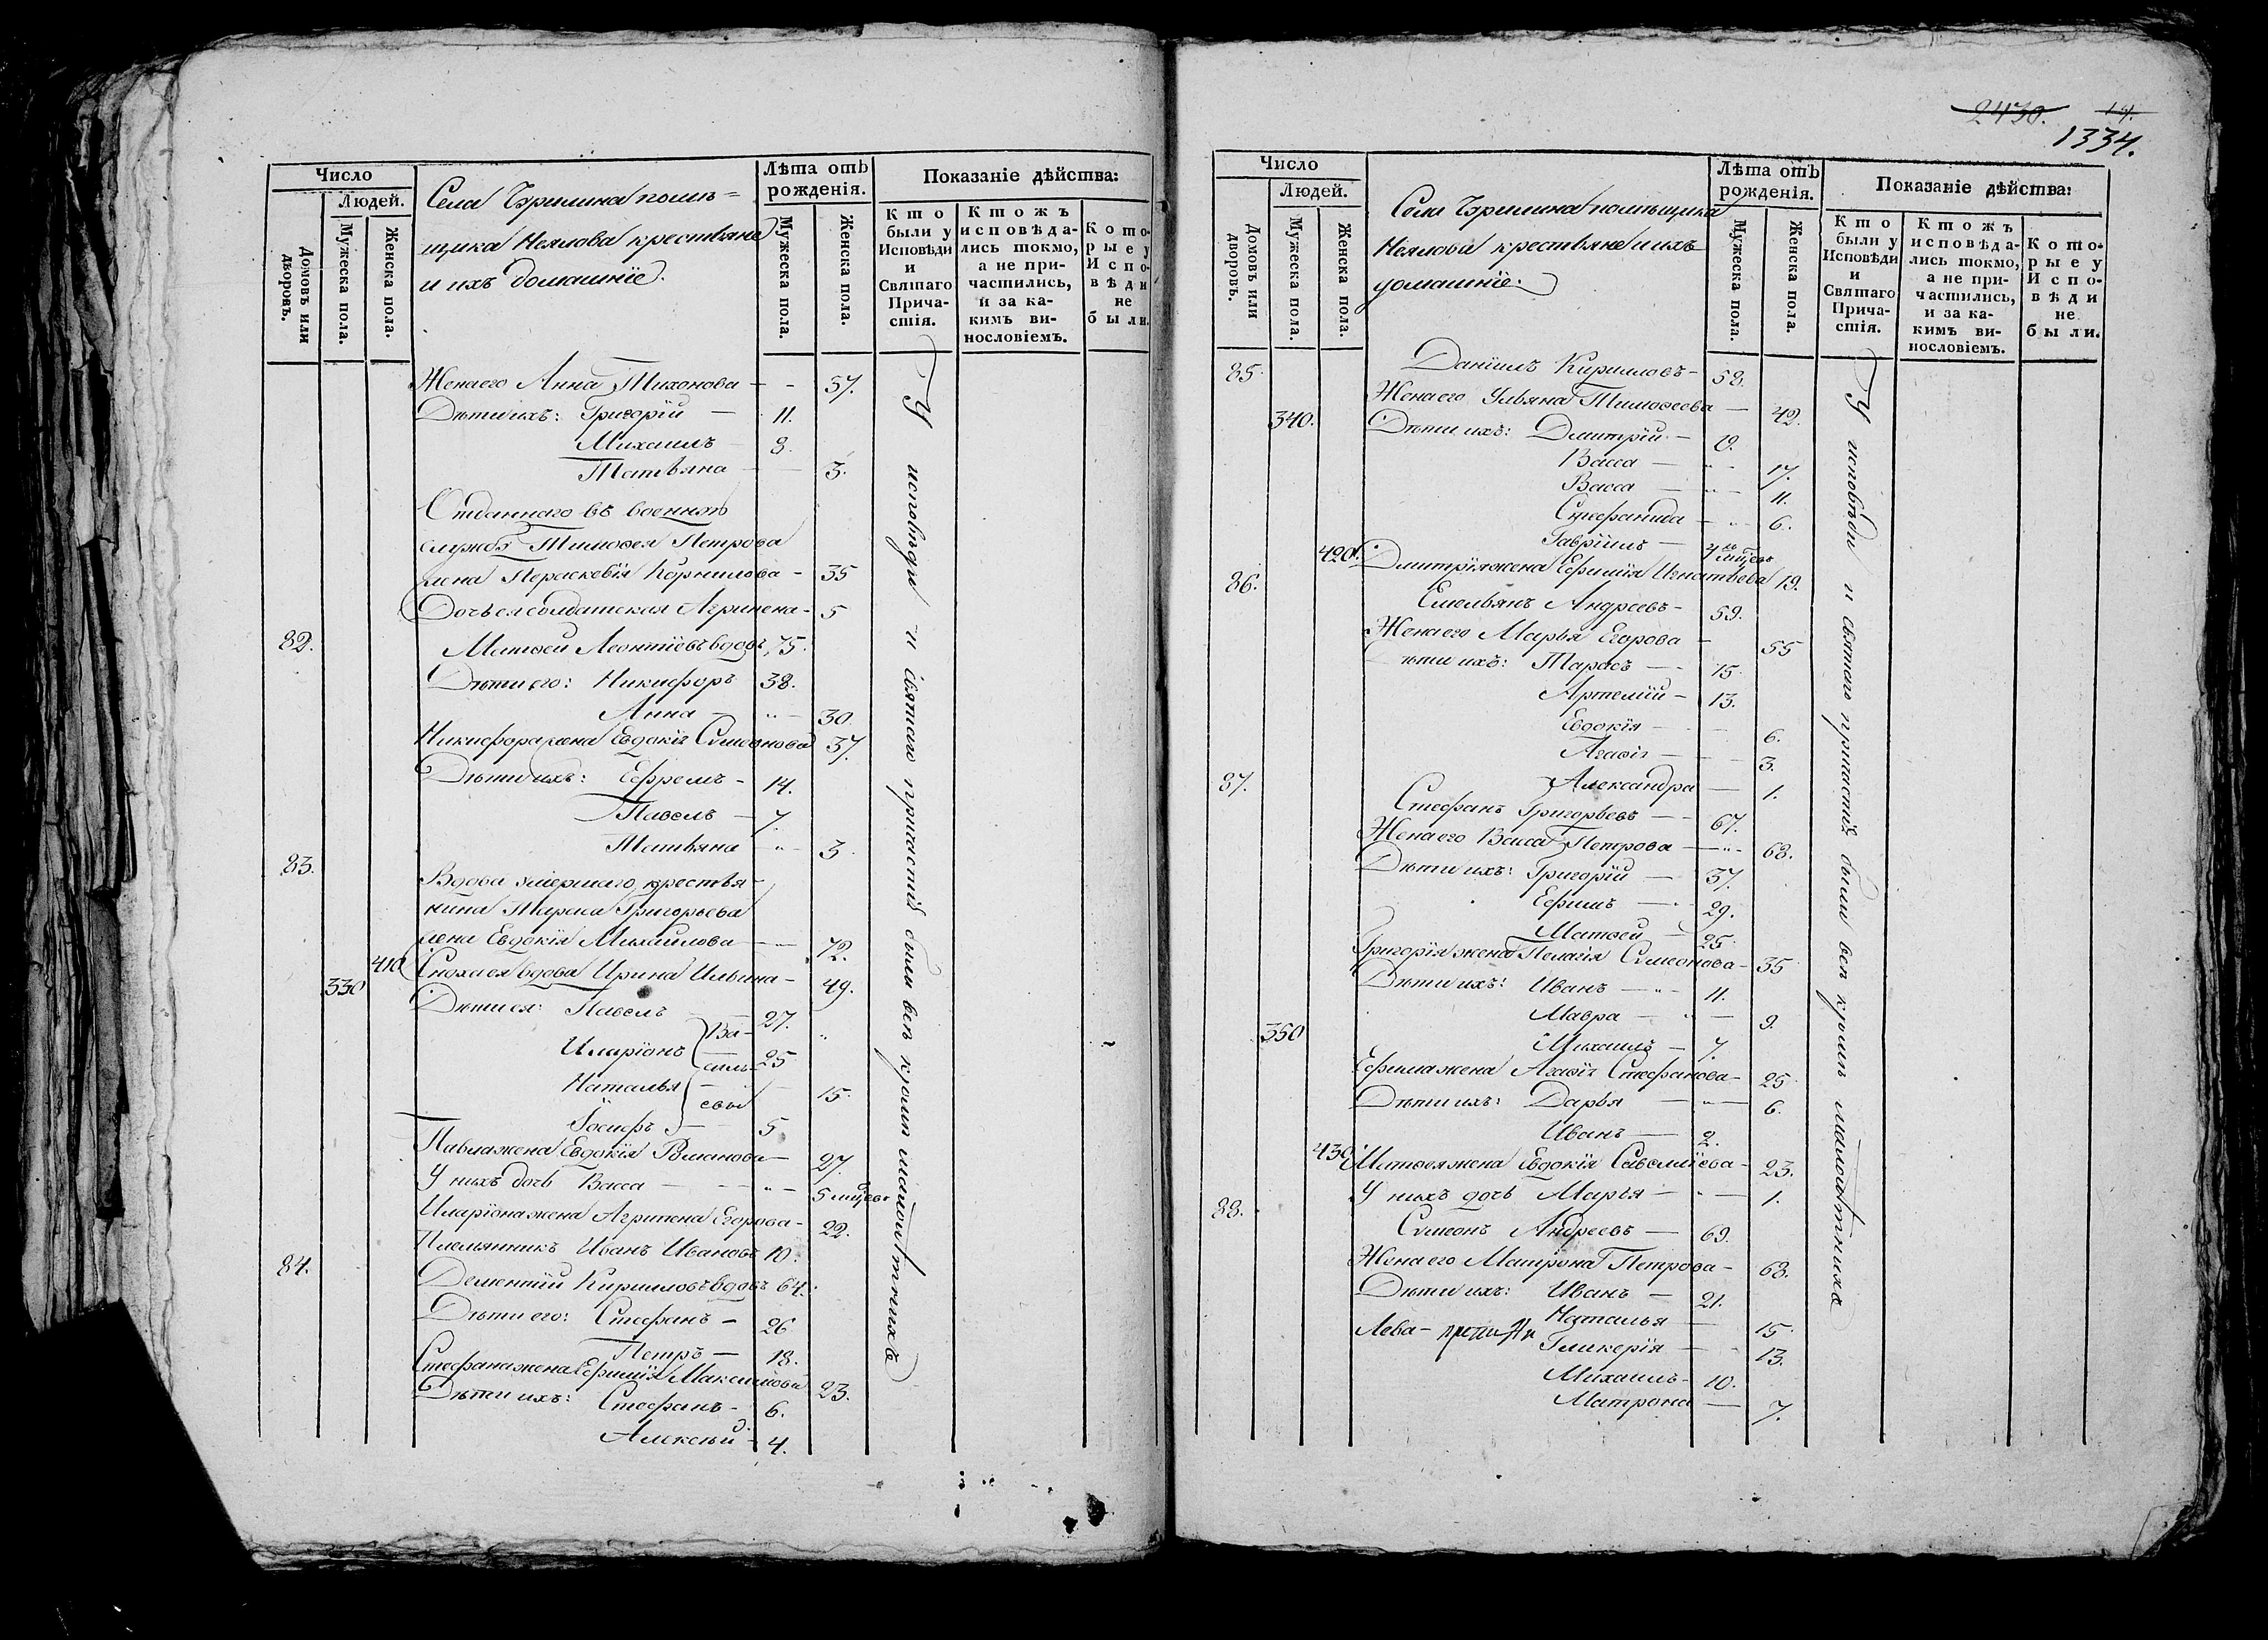 Число
Людей.
Домовъ или дворовъ.
Мужеска пола.
Женска пола.
Села помѣ=
щика Неялова крестьяне
и ихъ домашніе.
Лѣта отъ рожденія.
Мужеска пола.
Женска пола.
Показаніе дѣйства:
Кто были у Исповѣди и Святаго Причастія.
Ктожъ исповѣдались токмо, а не причастились, и за какимъ винословіемъ.
Которые у Исповѣди не были.
Жена его Анна Тихонова - - 57.
Дѣти ихъ: Григорій — 11.
Михаилъ 8.
Татьяна — 3.
Отданнаго въ военную
службу Тимоѳея Петрова
жена Параскевія Корнилова - 35
Дочь ея солдатская Агрипена - 5
82. Матѳей Леонтіевъ вдовъ 75.
Дѣти его: Никифоръ 38.
Анна - „ - 30.
Никифора жена Евдокія Симеонова 37.
Дѣти ихъ: Ефремъ - 14.
Павелъ — 7.
Татьяна - „ - 3
83. Вдова умершаго крестья-
нина Тараса Григорьева
жена Евдокія Михайлова — 72.
410 Сноха ея вдова Ирина Ильина - 49.
330 Дѣти ея: Павелъ — 27.
Иларіонъ Ва- 25
Наталья силь- 15.
Іосифъ евы 5
Павла жена Евдокія Романова — 27.
У нихъ дочь Васса — - - „ - 5 мѣсяц.
Иларіона жена Агрипена Егорова - 22.
Племянникъ Иванъ Ивановъ 10.
84. Дементій Кириловъ вдовъ 64.
Дѣти его: Стефанъ - 26
Петръ — 18.
Стефана жена Ефимія Максимова 23.
Дѣти ихъ: Стефанъ - 6.
Алексѣй - 4.
У исповѣди и святаго причастія были всѣ кромѣ малолѣтнихъ
2430. 14.
1334.
Число
Людей.
Домовъ или дворовъ.
Мужеска пола.
Женска пола.
Села помѣщика
Неялова крестьяне и ихъ
домашніе.
Лѣта отъ рожденія.
Мужеска пола.
Женска пола.
Показаніе дѣйства:
Кто были у Исповѣди и Святаго Причастія.
Ктожъ исповѣдались токмо, а не причастились, и за какимъ винословіемъ.
Которые у Исповѣди не были.
85. Даніилъ Кириловъ - 58.
Жена его Ульяна Тимоѳеева — 42.
340. Дѣти ихъ: Дмитрій - 19.
Васса — „ - 17.
Васса — „ - 11.
Стефанида - „ - 6.
Гавріилъ — 4 мѣсяц.
420. Дмитрія жена Ефимія Игнатьева 19.
86. Емельянъ Андреевъ - 59.
Жена его Марья Егорова — 55
Дѣти ихъ: Тарасъ — 15.
Артемій - 13.
Евдокія - 6.
Агаѳія — 3.
Александра — 1.
87. Стефанъ Григорьевъ — 67.
Жена его Васса Петрова — „ - 68.
Дѣти ихъ: Григорій — 37.
Ефимъ — 29.
Матѳей - 25.
Григорія жена Пелагія Симеонова - 35
Дѣти ихъ: Иванъ — „ - 11.
Мавра — 9.
350 Михаилъ - 7.
Ефима жена Агаѳія Стефанова - 25
Дѣти ихъ: Дарья — „ — 6.
Иванъ — 2.
430 Матѳея жена Евдокія Савеліева - 23.
У нихъ дочь Марѳа — 1.
88. Симеонъ Андреевъ — 69.
Жена его Матрона Петрова - 68.
Дѣти ихъ: Иванъ — 21.
Наталья 15.
Гликерія - 13.
Михаилъ - 10.
Матрона — 7.
У исповѣди и святаго причастія были всѣ кромѣ малолѣтнихъ